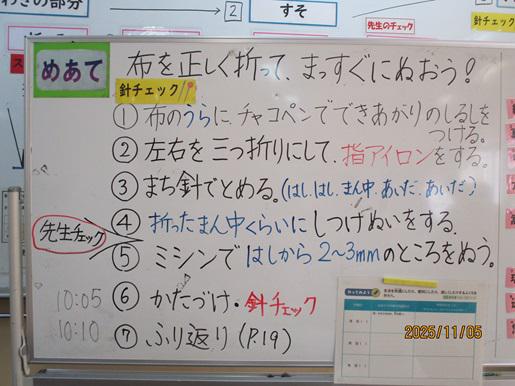 わきの部分
2
すそ
先生のチェック
針チェック
めあて
布を正しく折って、まっすぐにぬおう!
針チェック
① 布のうらに、チャコペンでできあがりのしるしを
つける。
② 左右を三つ折りにして、指アイロンをする。
③ まち針でとめる。(はし.はし.まん中.あいだ.あいだ)
先生チェック
④ 折ったまん中くらいにしつけぬいをする.
⑤ ミシンではしから2〜3mmのところをぬう。
10:05
⑥ かたづけ・針チェック
10:10
⑦ ふり返り(P.19)
2025/11/05